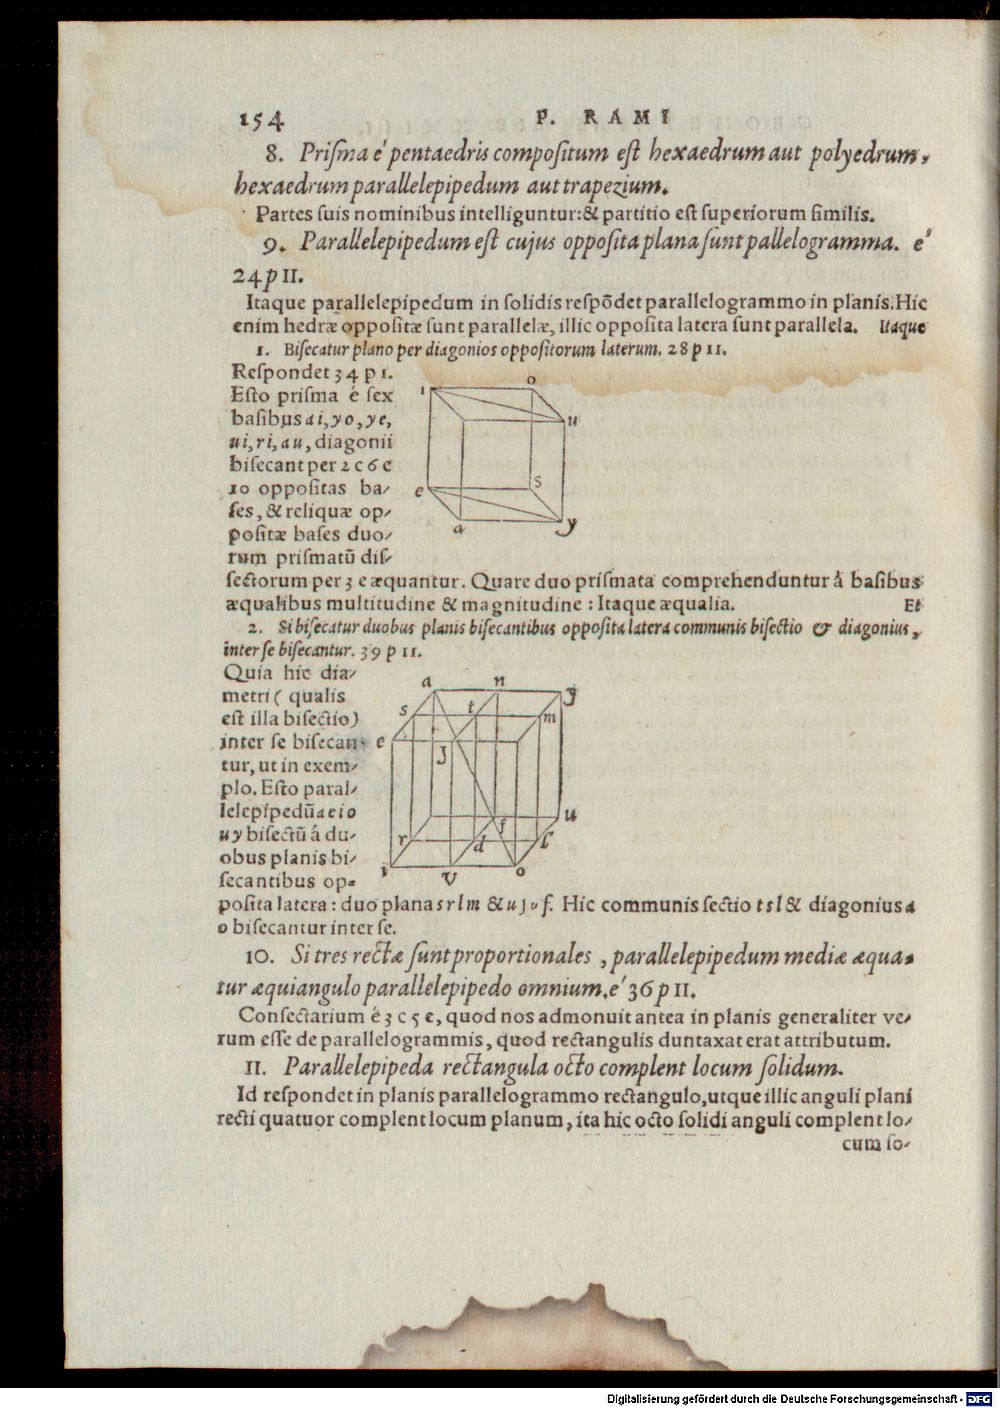 154 P. RAMI
8. Priſma é pentaedris compoſitum eſt hexaedrum aut polyedrum,
hexaedrum parallelepipedum aut trapezium.
Partes ſuis nominibus intelliguntur:& partitio eſt ſuperiorum ſimilis.
9. Parallelepipedum eſt cujus oppoſita plana ſunt pallelogramma. e'
24 p 11.
Itaque parallelepipedum in ſolidis reſpõdet parallelogrammo in planis.Hic
enim hedræ oppoſitæ ſunt parallelæ, illic oppoſita latera ſunt parallela. Itaque
1. Biſecatur plano per diagonios oppoſitorum laterum. 28 p 11.
Reſpondet 34 p 1.
Eſto priſma é ſex
baſibus ai, yo, ye,
ui, ri, au, diagonii
biſecant per 2 c 6 e
10 oppoſitas ba-
ſes, & reliquæ op-
poſitæ baſes duo-
rum priſmatũ diſ-
ſectorum per 3 e æquantur. Quare duo priſmata comprehenduntur á baſibus
æqualibus multitudine & magnitudine : Itaque æqualia. Et
i o
u
e s
a y
2. Si biſecatur duobus planis biſecantibus oppoſita latera communis biſectio & diagonius,
inter ſe biſecantur. 39 p 11.
Quia hic dia-
metri ( qualis
eſt illa biſectio)
inter ſe biſecan-
tur, ut in exem-
plo. Eſto paral-
lelepipedũ a e i o
u y biſectũ á du-
obus planis bi-
ſecantibus op-
poſita latera : duo plana s r l m & n j v f. Hic communis ſectio t s l & diagonius a
o biſecantur inter ſe.
a n y
s t m
e j
f u
r d l
i v o
10. Si tres rectæ ſunt proportionales , parallelepipedum mediæ æqua-
tur æquiangulo parallelepipedo omnium. e' 36 p 11.
Conſectarium é 3 c 5 e, quod nos admonuit antea in planis generaliter ve-
rum eſſe de parallelogrammis, quod rectangulis duntaxat erat attributum.
11. Parallelepipeda rectangula octo complent locum ſolidum.
Id reſpondet in planis parallelogrammo rectangulo,utque illic anguli plani
recti quatuor complent locum planum, ita hic octo ſolidi anguli complent lo-
cum ſo-
Digitalisierung gefördert durch die Deutsche Forschungsgemeinschaft - DFG